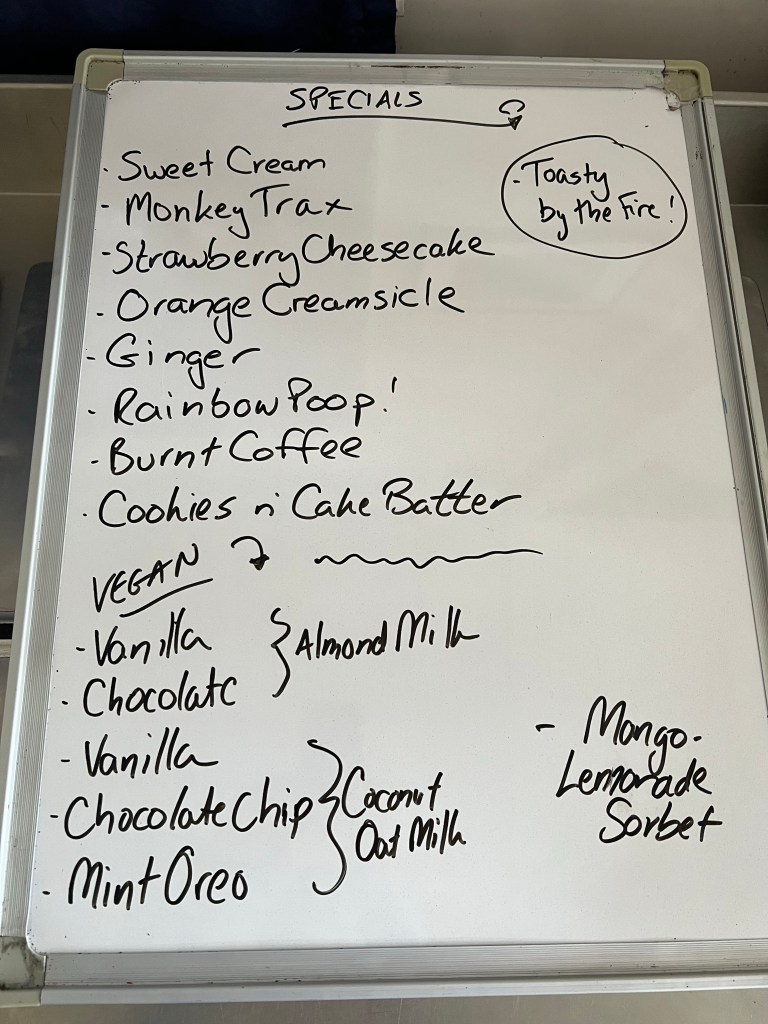 SPECIALS
- Sweet Cream
- Monkey Trax
- Strawberry Cheesecake
- Orange Creamsicle
- Ginger
- Rainbow Poop!
- Burnt Coffee
- Cookies n' Cake Batter
- Toasty
by the Fire!
VEGAN
- Vanilla
- Chocolate
} Almond Milk
- Vanilla
- Chocolate Chip
- Mint Oreo
} Coconut
Oat Milk
- Mango-
Lemonade
Sorbet